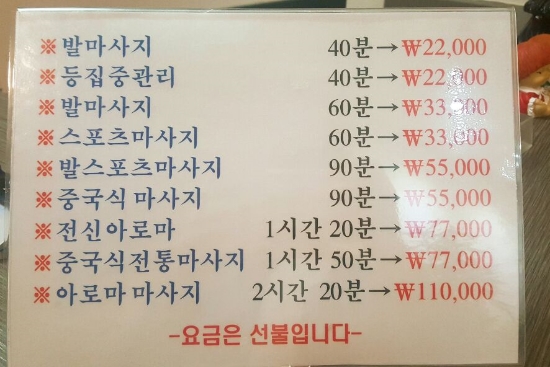 ※ 발마사지 40분→₩22,000
※ 등집중관리 40분→₩22,000
※ 발마사지 60분→₩33,000
※ 스포츠마사지 60분→₩33,000
※ 발스포츠마사지 90분→₩55,000
※ 중국식 마사지 90분→₩55,000
※ 전신아로마 1시간 20분→₩77,000
※ 중국식전통마사지 1시간 50분→₩77,000
※ 아로마 마사지 2시간 20분→₩110,000
-요금은 선불입니다-